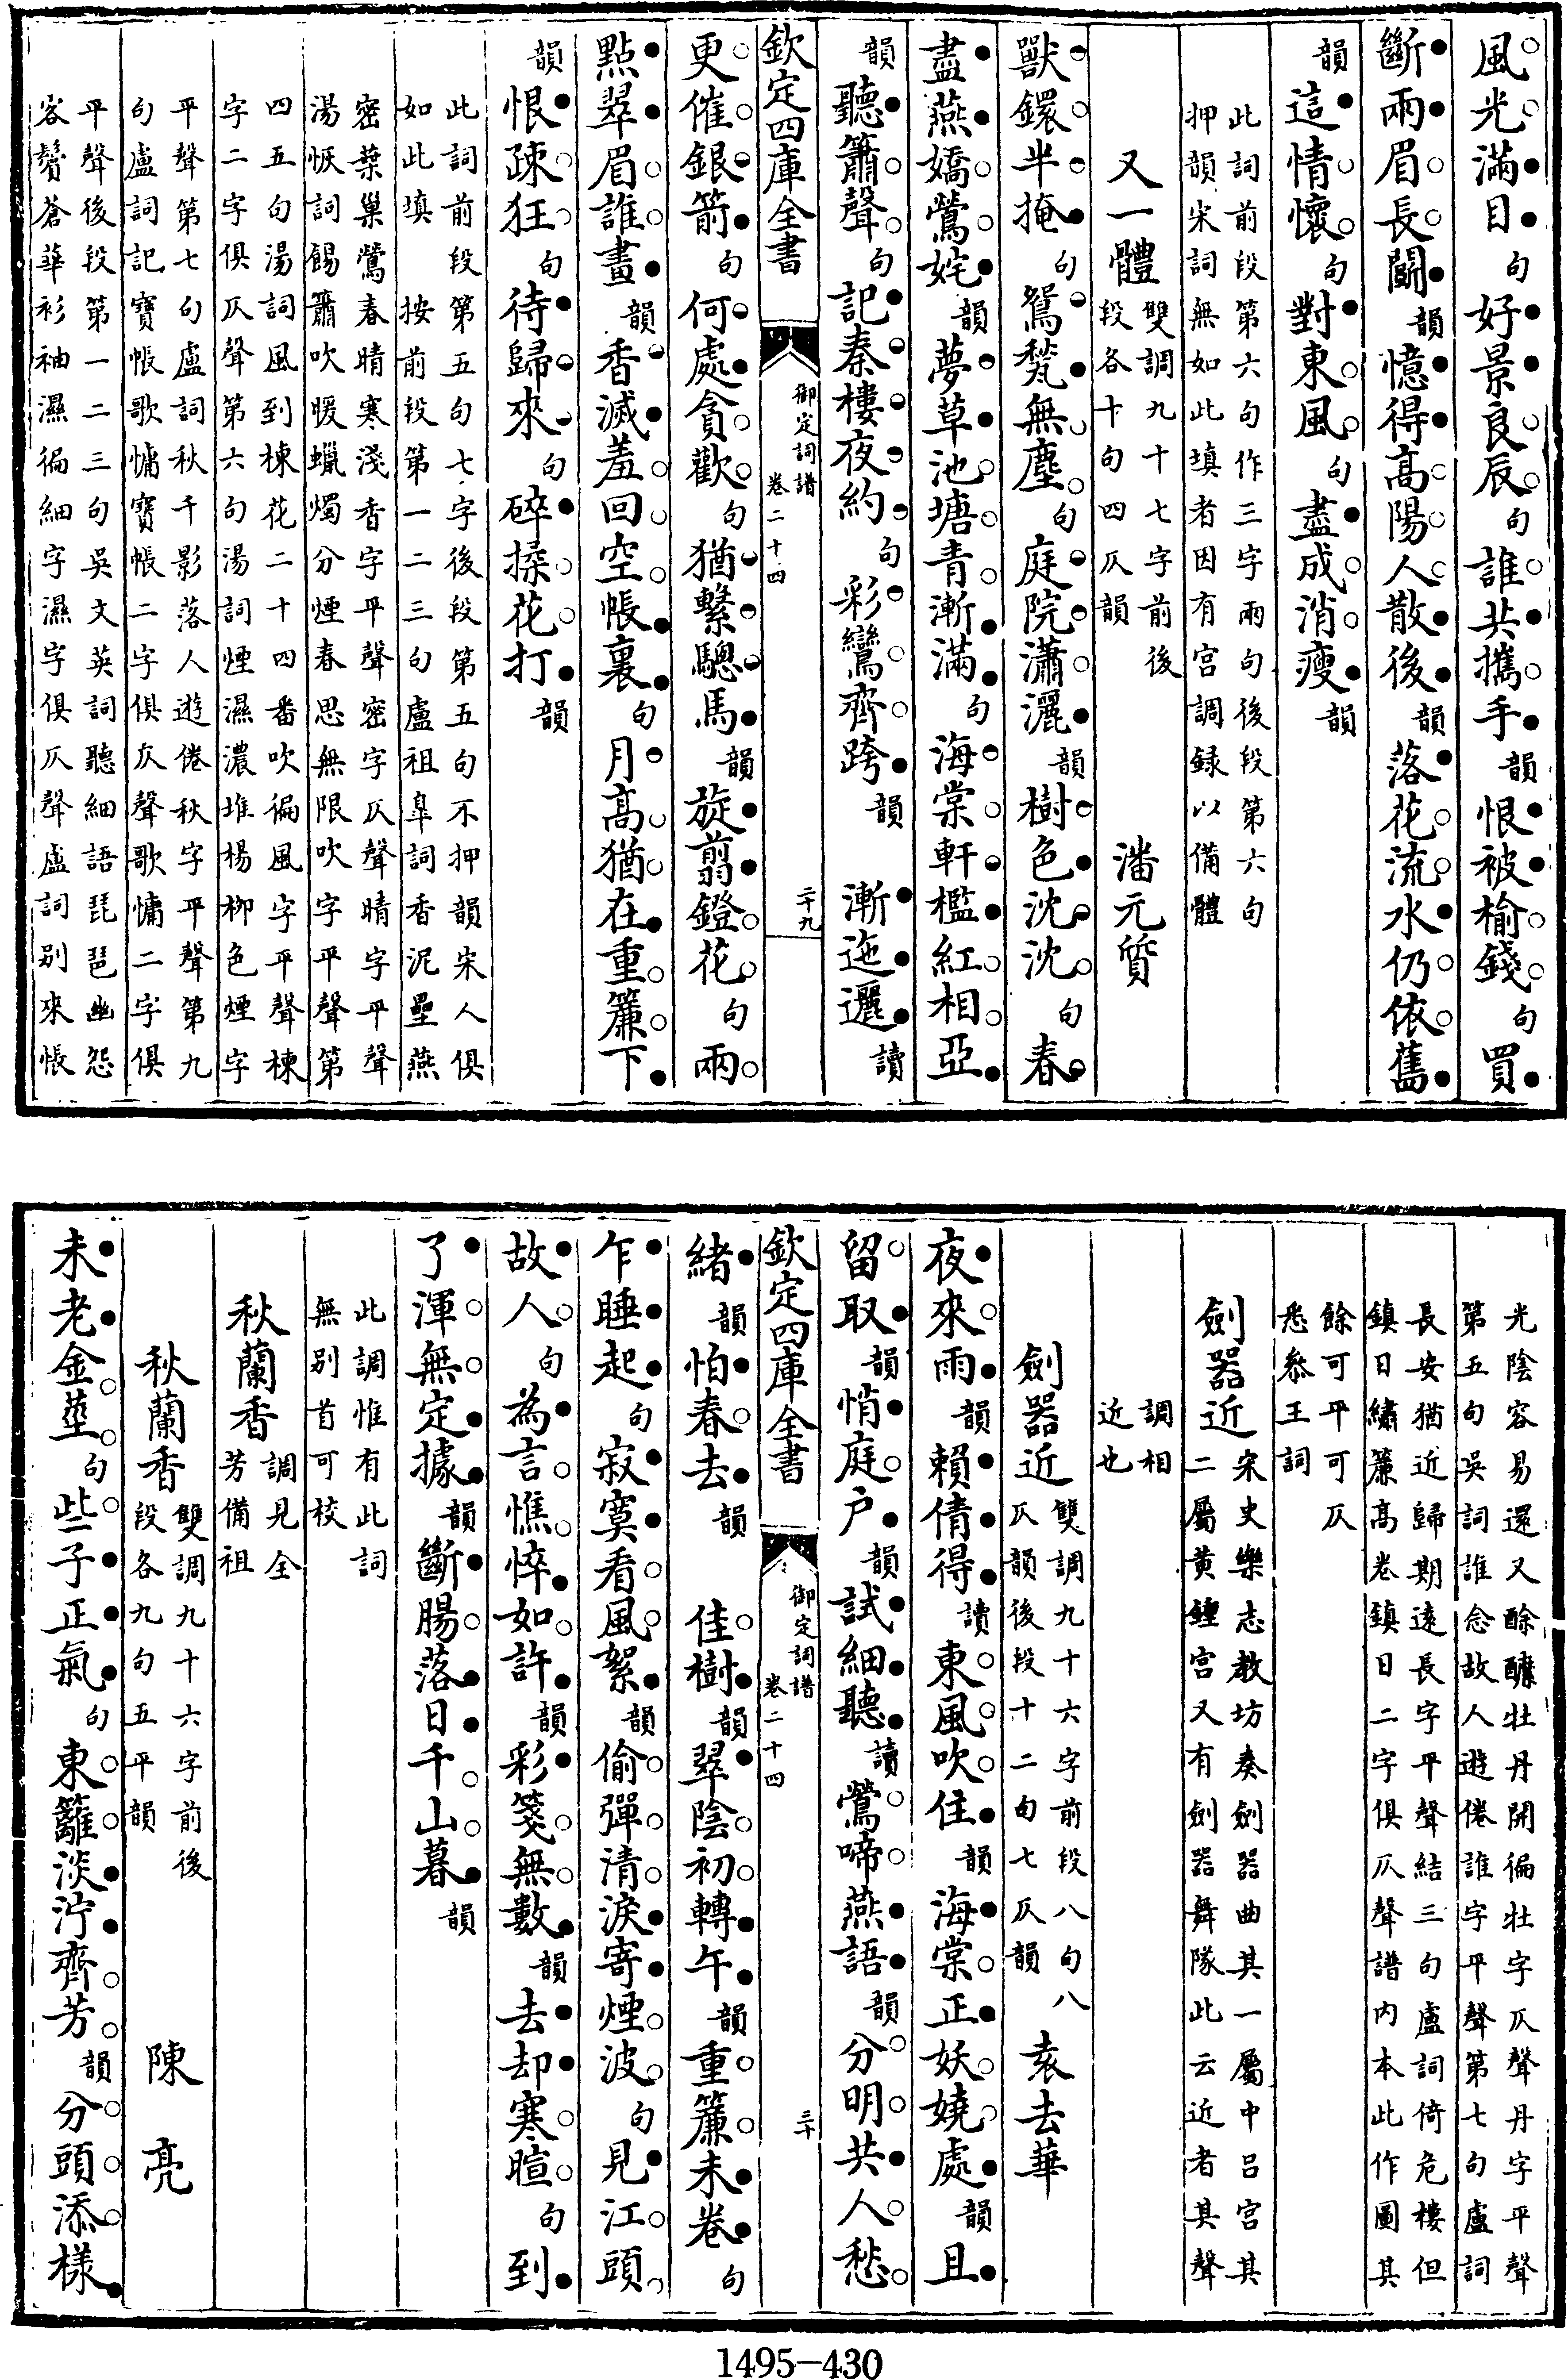 風光滿目句好景良辰句誰共攜手韻恨被榆錢句買
斷兩眉長鬬韻憶得高陽人散後韻落花流水仍依舊
韻這情懷句對東風句盡成消瘦韻
此詞前段第六句作三字兩句後段第六句
押韻宋詞無如此填者因有宮調録以備體
又一體雙調九十七字前後
段各十句四仄韻潘元質
獸鐶半掩句鴛甃無塵句庭院瀟灑韻樹色沈沈句春
盡燕嬌鶯姹韻夢草池塘青漸滿句海棠軒檻紅相亞
韻聽簫聲句記秦樓夜約句彩鸞齊跨韻漸迤邐讀
欽定四庫全書
御定詞譜
卷二十四
二十九
更催銀箭句何處貪歡句猶繫驄馬韻旋翦鐙花句兩
點翠眉誰畫韻香滅羞回空帳裏句月高猶在重簾下
韻恨疎狂句待歸來句碎揉花打韻
此詞前段第五句七字後段第五句不押韻宋人俱
如此填按前段第一二三句盧祖皐詞香泥壘燕
密葉巢鶯春晴寒淺香字平聲密字仄聲晴字平聲
湯恢詞餳簫吹暖蠟燭分煙春思無限吹字平聲第
四五句湯詞風到楝花二十四番吹徧風字平聲楝
字二字俱仄聲第六句湯詞煙濕濃堆楊柳色煙字
平聲第七句盧詞秋千影落人遊倦秋字平聲第九
句盧詞記寶帳歌慵寶帳二字俱仄聲歌慵二字俱
平聲後段第一二三句吳文英詞聽細語琵琶幽怨
客鬢蒼華衫袖濕徧細字濕字俱仄聲盧詞别來悵
光陰容易還又酴醾牡丹開徧牡字仄聲丹字平聲
第五句吳詞誰念故人遊倦誰字平聲第七句盧詞
長安猶近歸期遠長字平聲結三句盧詞倚危樓但
鎮日繡簾高卷鎮日二字俱仄聲譜内本此作圖其
餘可平可仄
悉叅王詞
劍器近宋史樂志教坊奏劍器曲其一屬中呂宮其
二屬黄鍾宮又有劍器舞隊此云近者其聲
調相
近也
劍器近雙調九十六字前段八句八
仄韻後段十二句七仄韻袁去華
夜來雨韻賴倩得讀東風吹住韻海棠正妖嬈處韻且
留取韻悄庭户韻試細聽讀鶯啼燕語韻分明共人愁
緒韻怕春去韻佳樹韻翠陰初轉午韻重簾未卷句
欽定四庫全書
御定詞譜
卷二十四
三十
乍睡起句寂寞看風絮韻偷彈清淚寄煙波句見江頭
故人句為言憔悴如許韻彩箋無數韻去却寒暄句到
了渾無定據韻斷腸落日千山暮韻
此調惟有此詞
無别首可校
秋蘭香調見全
芳備祖
秋蘭香雙調九十六字前後
段各九句五平韻陳亮
未老金莖句些子正氣句東籬淡泞齊芳韻分頭添樣
1495-430